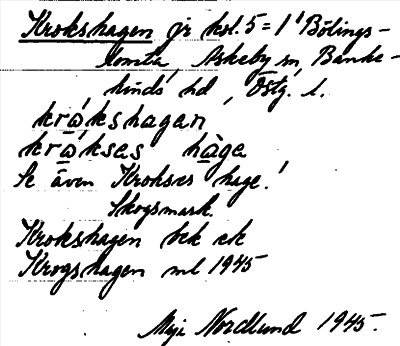 Krokshagen jr hsl. 5 = 1 i Bölings-
tomta Askeby sn, Banke-
kinds hd, Östg. l.
kråkshagan
kråkses hàge
Se även Krokses hage!
Skogsmark.
Krokshagen bek ek
Krogshagen ml 1945
Maja Nordlund 1945.